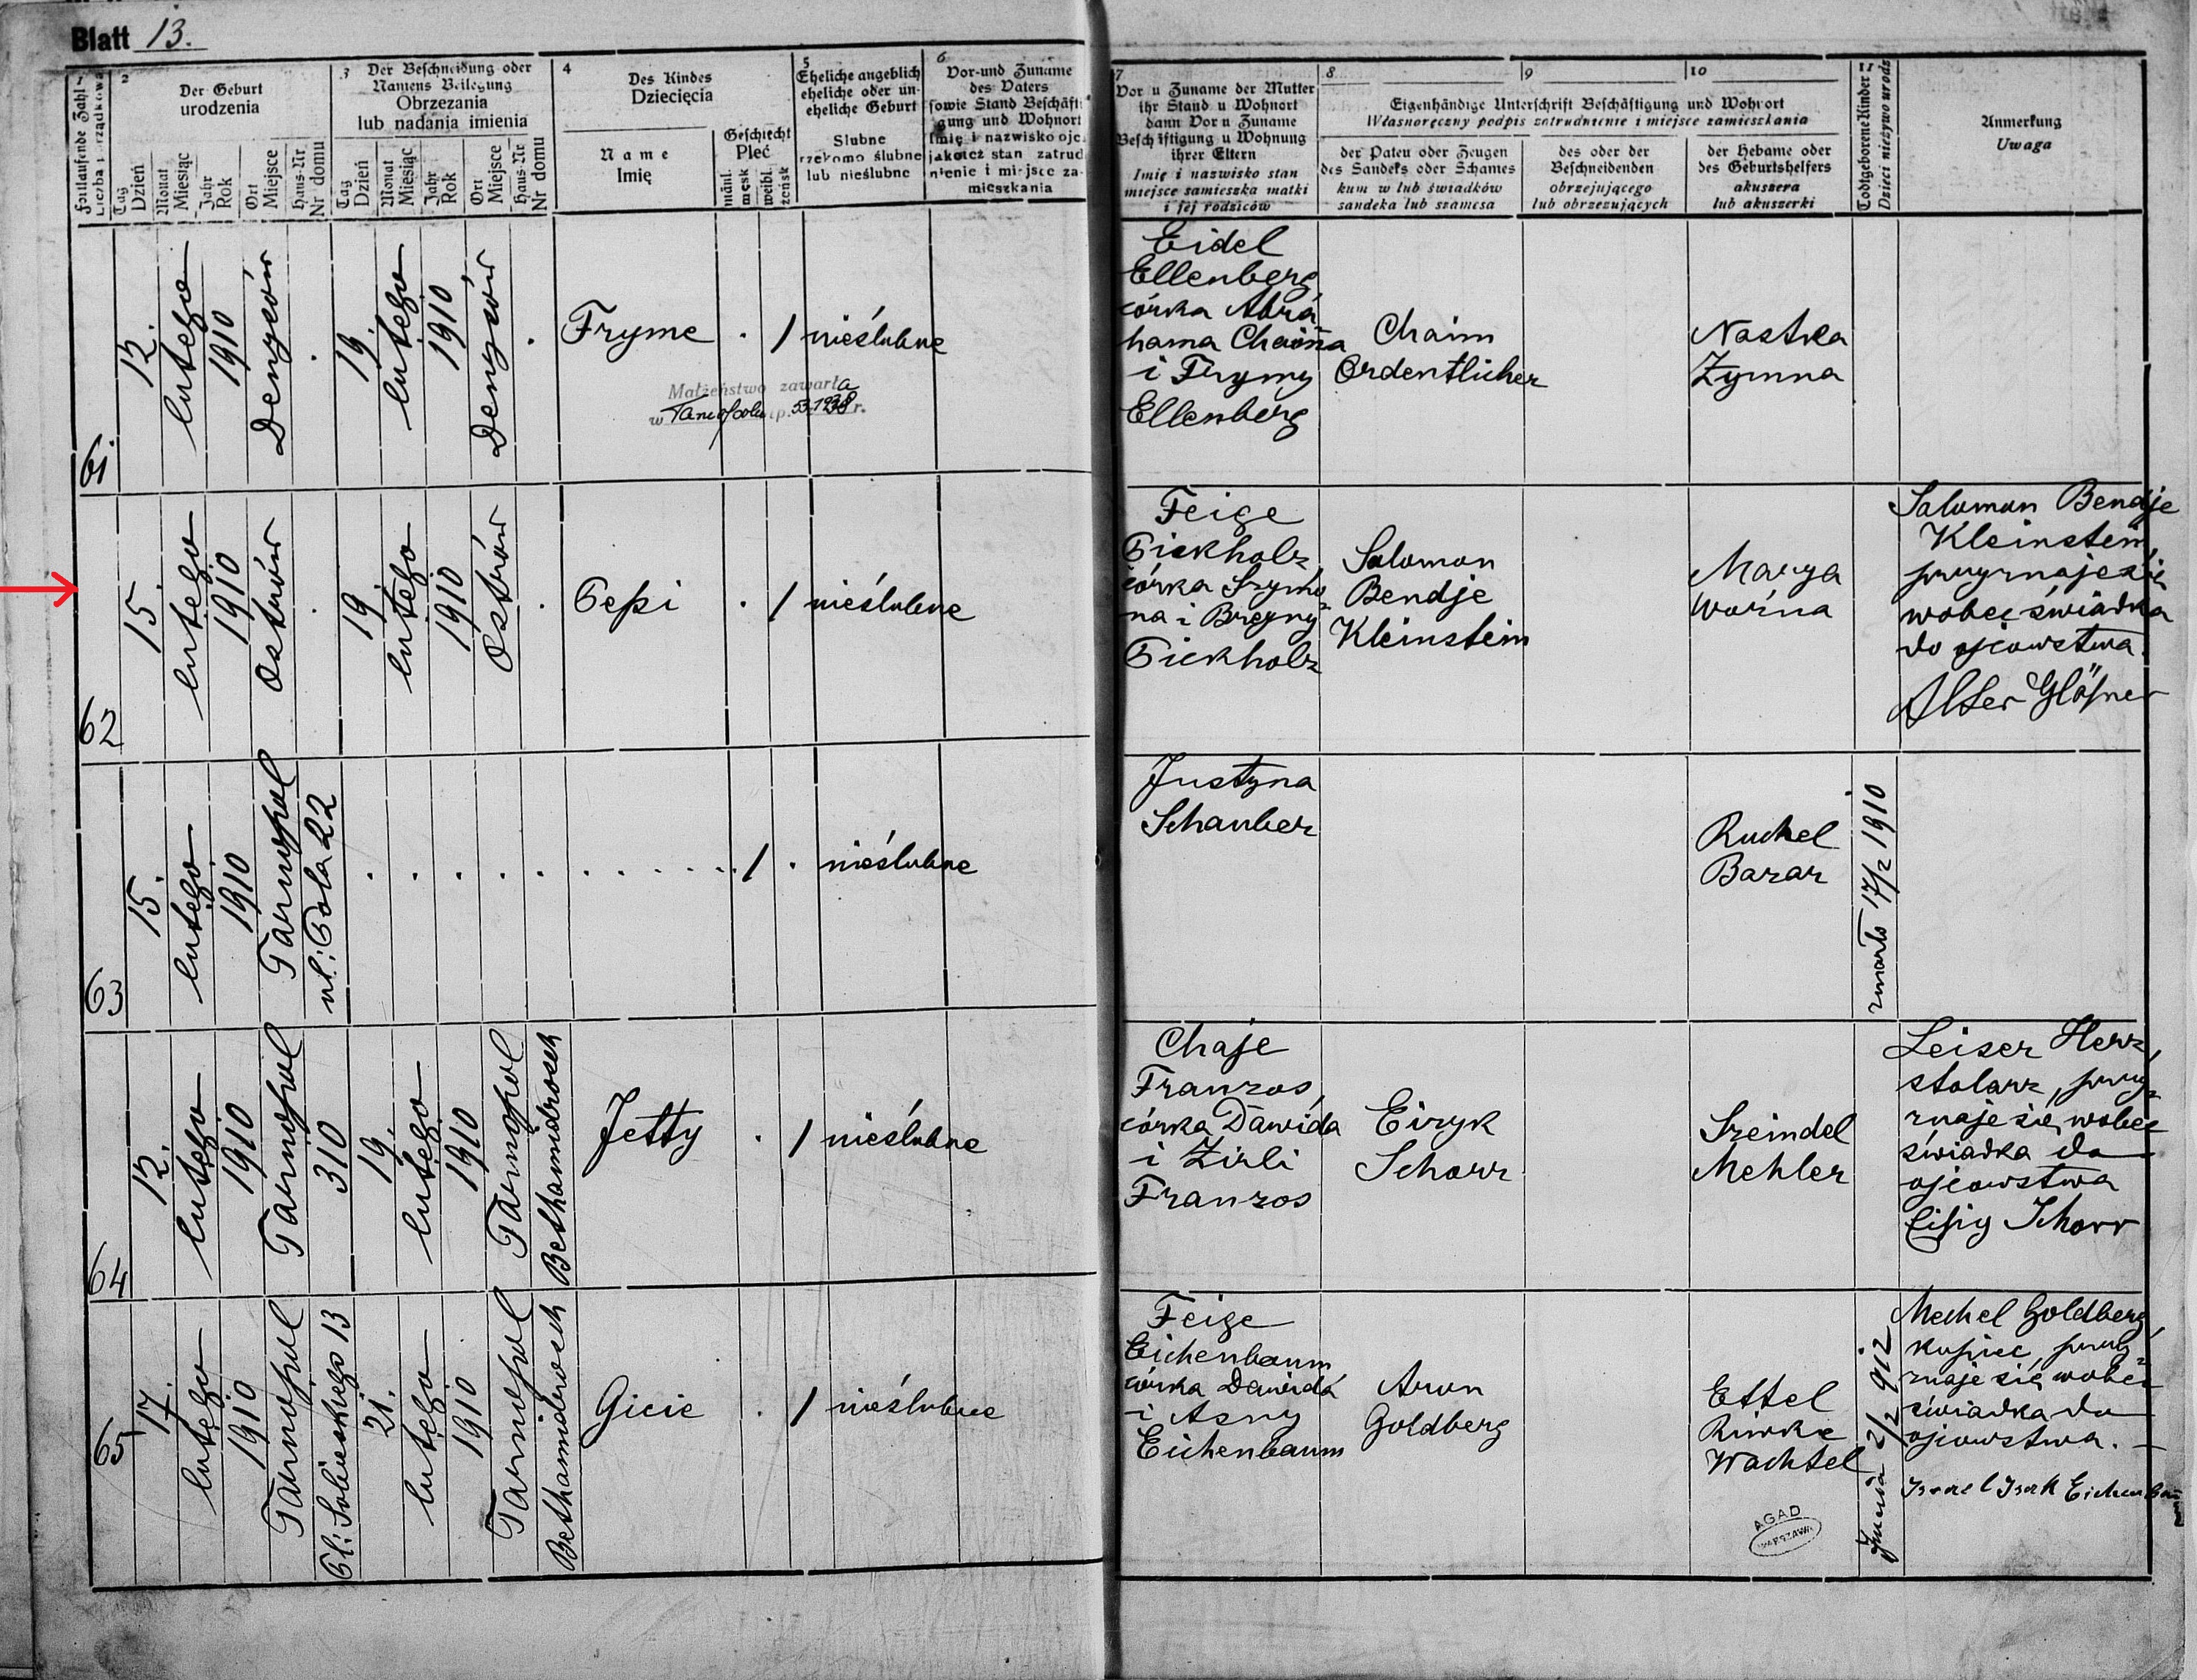 Blatt 13.
1 Fortlaufende Zahl Liczba porządkowa
2 Der Geburt
urodzenia
Tag Dzień
Monat Miesiąc
Jahr Rok
Ort Miejsce
Haus-Nr Nr domu
3 Der Beschneidung oder
Namens Beilegung
Obrzezania
lub nadania imienia
Tag Dzień
Monat Miesiąc
Jahr Rok
Ort Miejsce
Haus-Nr Nr domu
4 Des Kindes
Dziecięcia
Name
Imię
Geschlecht
Płeć
männl. męsk
weibl. żeńsk
5
Eheliche angeblich
eheliche oder un-
eheliche Geburt
Slubne
rzekomo ślubne
lub nieślubne
6
Vor-und Zuname
des Vaters
sowie Stand Beschäfti
gung und Wohnort
Imię i nazwisko ojc
jakoteż stan zatrud
nienie i miejsce za-
mieszkania
7
Vor u Zuname der Mutter
ihr Stand u Wohnort
dann Vor u Zuname
Beschäftigung u Wohnung
ihrer Eltern
Imię i nazwisko stan
miejsce zamieszka matki
i jej rodziców
8 9 10
Eigenhändige Unterschrift Beschäftigung und Wohnort
Własnoręczny podpis zatrudnienie i miejsce zamieszkania
der Paten oder Zeugen
des Sandeks oder Schames
kum w lub świadków
sandeka lub szamesa
des oder der
Beschneidenden
obrzezującego
lub obrzezujących
der Hebame oder
des Geburtshelfers
akuszera
lub akuszerki
11 Todtgeborene Kinder
Dzieci nieżywo urodz
Anmerkung
Uwaga
61
12.
lutego
1910
Denysów
.
19.
lutego
1910
Denysów
.
Fryme
.
/
nieślubne
Małżeństwo zawarła
w Tarnopolu l.p. 53.1938 r.
Eidel
Ellenberg,
córka Abra
hama Chaima
i Frymy
Ellenberg
Chaim
Ordentlicher
Nastka
Zymna
62
15.
lutego
1910
Ostrów
.
19.
lutego
1910
Ostrów
.
Pepi
.
/
nieślubne
Feige
Pickholz,
córka Szymo
na i Breyny
Pickholz
Salomon
Bendje
Kleinstein
Marya
Woźna
Salomon Bendje
Kleinstein,
przyznaje się
wobec świadka
do ojcowstwa.
Alter Glößner
63
15.
lutego
1910
Tarnopol
ul: Pola 22
. . . . . . . . . .
/
.
nieślubne
Justyna
Schauber
Ruchel
Barar
zmarło 17/2 1910
64
12.
lutego
1910
Tarnopol
310
19.
lutego
1910
Tarnopol
Bethamidrosch
Jetty
.
/
nieślubne
Chaje
Franzos,
córka Dawida
i Zirli
Franzos
Eizyk
Schorr
Szeindel
Mehler
Leiser Herz,
stolarz, przy
znaje się wobec
świadka do
ojcowstwa
Eisig Schorr
65
17.
lutego
1910
Tarnopol
Ul: Sobieskiego 13
21.
lutego
1910
Tarnopol
Bethamidrosch
Gicie
.
/
nieślubne
Feige
Eichenbaum
córka Dawida
i Asny
Eichenbaum
Aron
Goldberg
Ettel
Riwke
Wachtel
2/2 912
Mechel Goldberg,
kupiec, przy
znaje się wobec
świadka do
ojcowstwa. —
Israel Isak Eichenbaum
AGAD
WARSZAWA